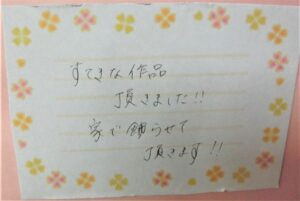 すてきな作品
頂きました!!
家で飾らせて
頂きます!!